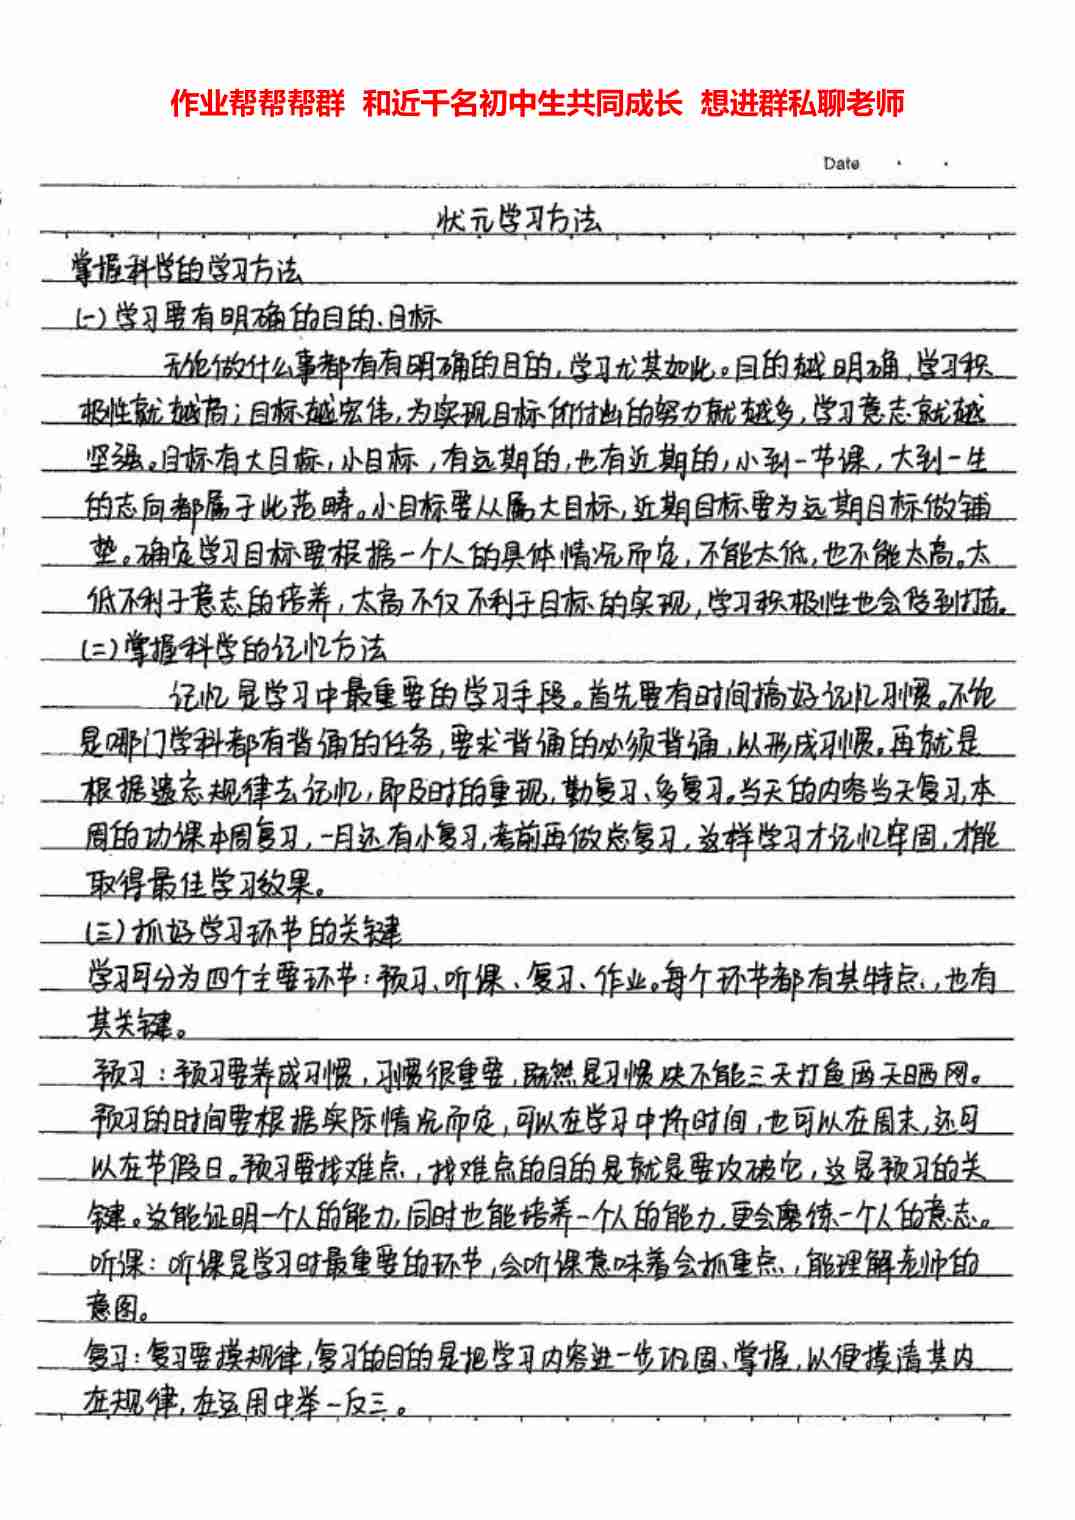 作业帮帮帮群 和近千名初中生共同成长 想进群私聊老师
Date
状元学习方法
掌握科学的学习方法
(一)学习要有明确的目的、目标
无论做什么事都有有明确的目的,学习尤其如此。目的越明确,学习积
极性就越高;目标越宏伟,为实现目标所付出的努力就越多,学习意志就越
坚强。目标有大目标,小目标,有远期的,也有近期的,小到一节课,大到一生
的志向都属于此范畴。小目标要从属大目标,近期目标要为远期目标做铺
垫。确定学习目标要根据一个人的具体情况而定,不能太低,也不能太高。太
低不利于意志的培养,太高不仅不利于目标的实现,学习积极性也会受到打击。
(二)掌握科学的记忆方法
记忆是学习中最重要的学习手段。首先要有时间搞好记忆习惯。不论
是哪门学科都有背诵的任务,要求背诵的必须背诵,以形成习惯。再就是
根据遗忘规律去记忆,即及时的重现,勤复习、多复习。当天的内容当天复习,本
周的功课本周复习,一月还有小复习,考前再做总复习,这样学习才记忆牢固,才能
取得最佳学习效果。
(三)抓好学习环节的关键
学习可分为四个主要环节:预习、听课、复习、作业。每个环节都有其特点,也有
其关键。
预习:预习要养成习惯,习惯很重要,既然是习惯决不能三天打鱼两天晒网。
预习的时间要根据实际情况而定,可以在学习中挤时间,也可以在周末,还可
以在节假日。预习要找难点,找难点的目的是就是要攻破它,这是预习的关
键。这能证明一个人的能力,同时也能培养一个人的能力,更会磨练一个人的意志。
听课:听课是学习时最重要的环节,会听课意味着会抓重点,能理解老师的
意图。
复习:复习要摸规律,复习的目的是把学习内容进一步巩固、掌握,以便摸清其内
在规律,在运用中举一反三。